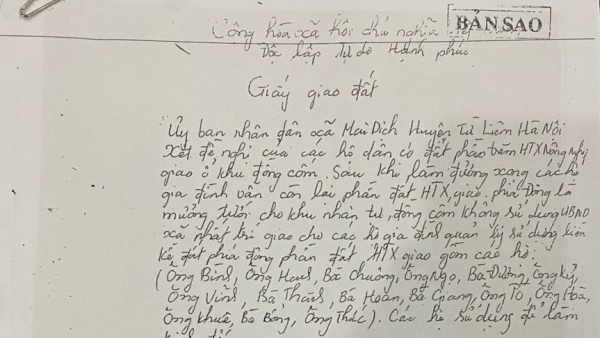 BẢN SAO
Cộng hòa xã hội chủ nghĩa
Độc lập Tự do Hạnh phúc
Giấy giao đất
Ủy ban nhân dân xã Mai Dịch Huyện Từ Liêm Hà Nội
Xét đề nghị của các hộ dân có đất phần trăm HTX Nông Nghiệp
giao ở khu đồng cốm. Sau khi làm đường xong các hộ
gia đình vẫn còn lại phần đất HTX giao, phía Đông là
mương tưới cho khu nhân tư, đồng cốm không sử dụng UBND
xã nhất trí giao cho các hộ gia đình quản lý sử dụng liền
kề đất phía đông phần đất HTX giao gồm các hộ:
(Ông Bính, Ông Hanh, Bà Chuông, Ông Ngọ, Bà Đường, Ông Kỷ,
Ông Vinh, Bà Thanh, Bà Hoan, Bà Giang, Ông Tô, Ông Hoà,
Ông Khuê, Bà Bóng, Ông Thức). Các hộ sử dụng để làm